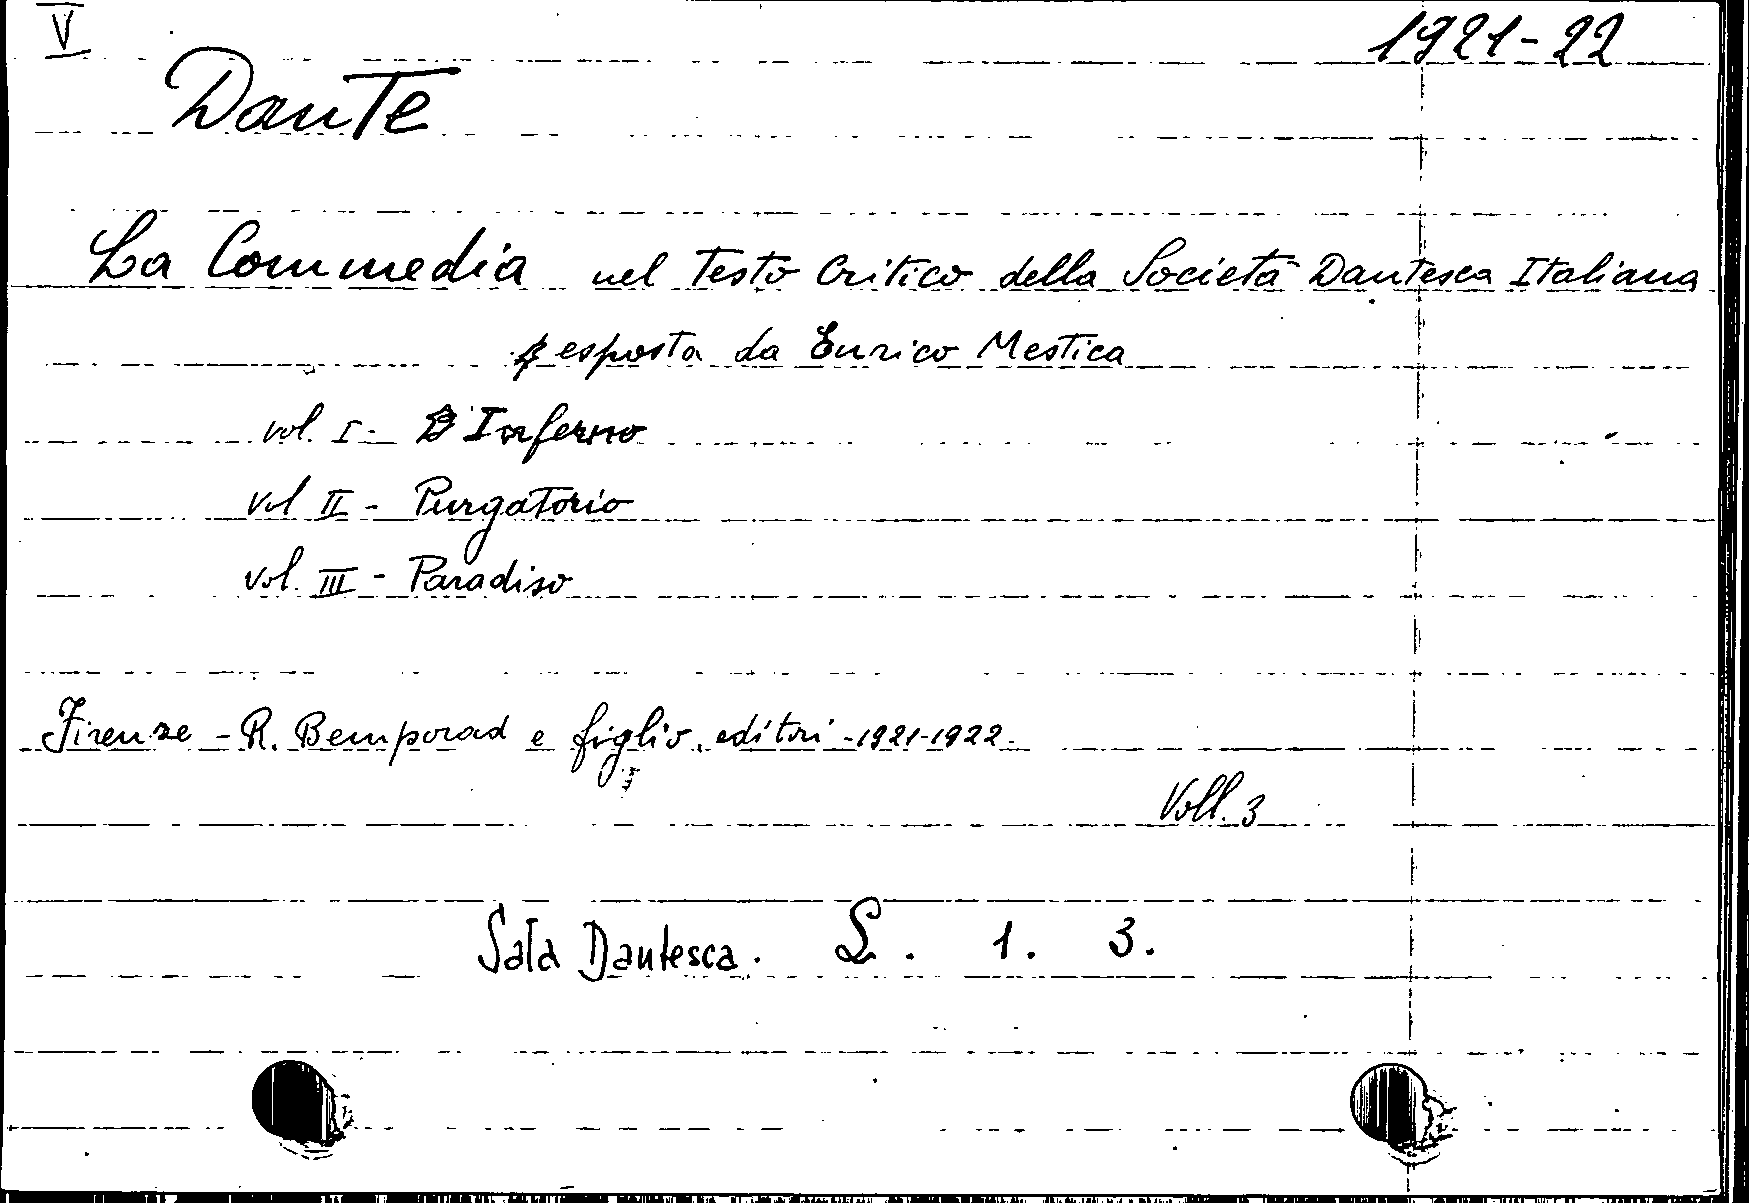 V 1921-22
Dante
La Commedia nel Testo Critico della Società Dantesca Italiana
esposta da Enrico Mestica
vol. I - Inferno
vol II - Purgatorio
vol. III - Paradiso
Firenze - R. Bemporad e figlio, editori - 1921-1922.
Voll. 3
Sala Dantesca. L. 1. 3.